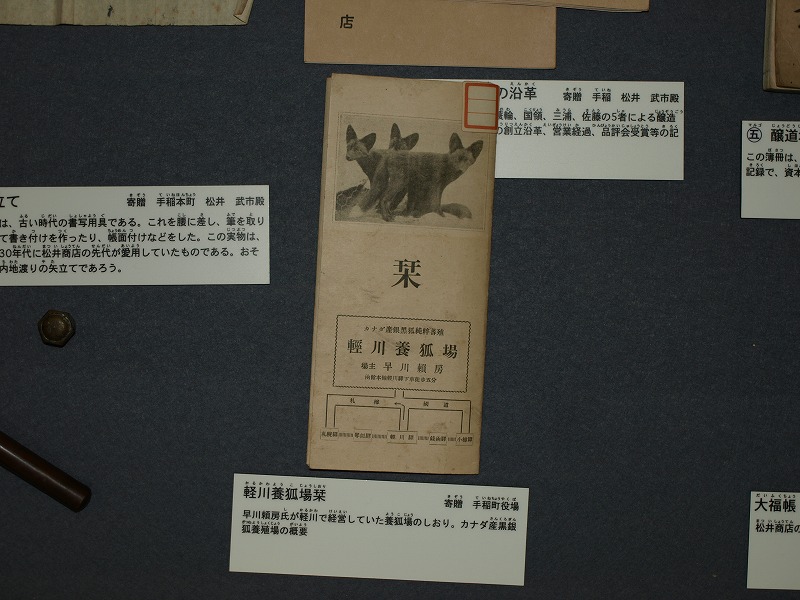 店
の沿革 寄贈 手稲 松井 武市殿
蓑輪、国領、三浦、佐藤の5者による醸造
の創立沿革、営業経過、品評会受賞等の記
立て 寄贈 手稲本町 松井 武市殿
は、古い時代の書写用具である。これを腰に差し、筆を取り
て書き付けを作ったり、帳面付けなどをした。この実物は、
30年代に松井商店の先代が愛用していたものである。おそ
内地渡りの矢立てであろう。
㊄ 醸造
この簿冊は、
記録で、資本
栞
カナダ産銀黒狐純粹蕃殖
輕川養狐塲
塲主 早川賴房
函館本線輕川驛下車徒歩五分
札樽國道
札幌驛 琴似驛 輕川驛 錢函驛 小樽驛
軽川養狐場栞 寄贈 手稲町役場
早川頼房氏が軽川で経営していた養狐場のしおり。カナダ産黒銀
狐養殖場の概要
大福帳
松井商店の